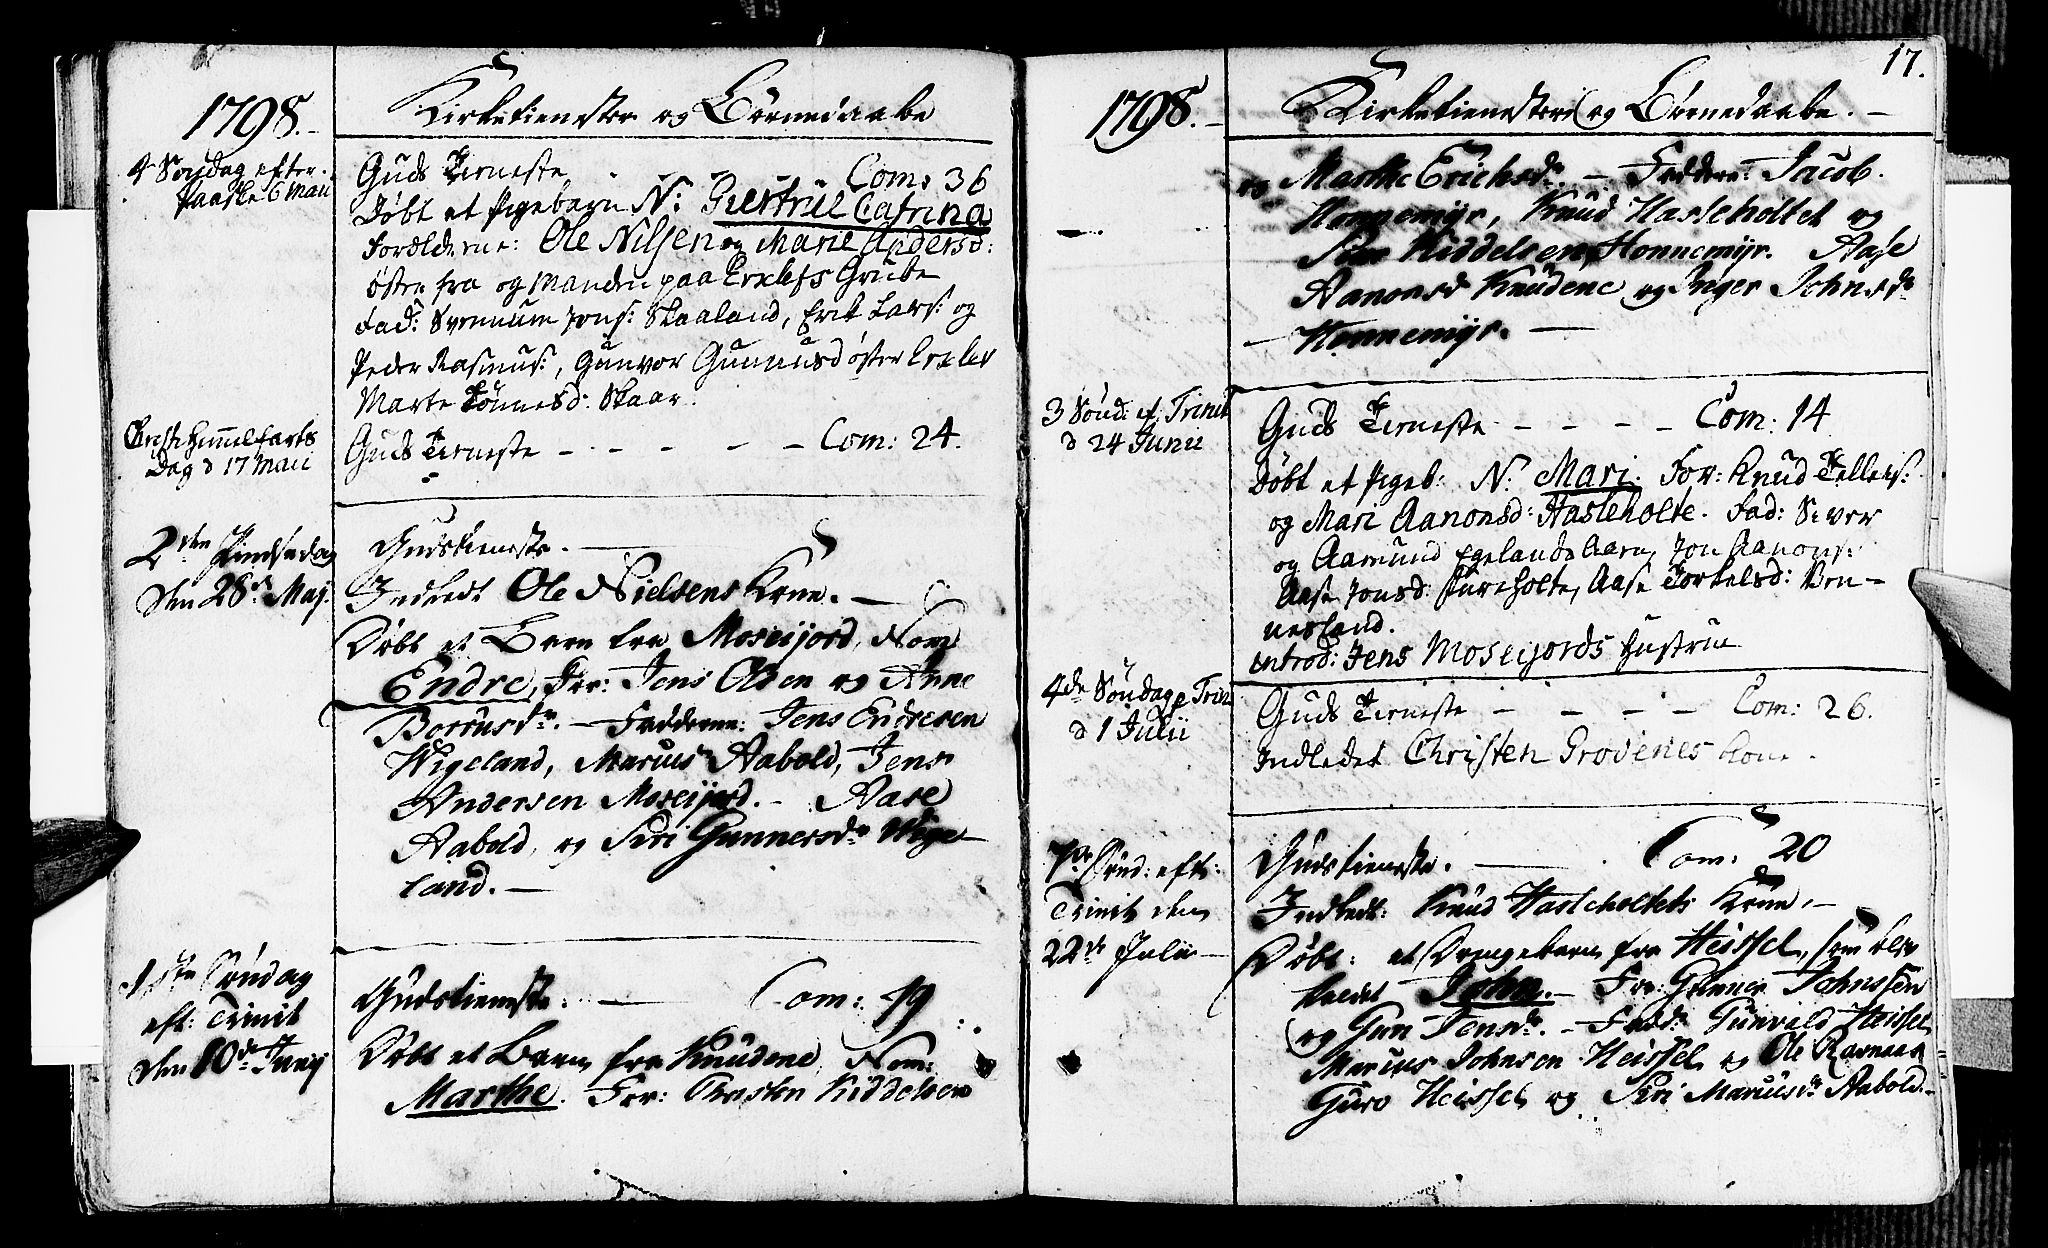 1798.
Kirketienester og Børnedaabe
4 Søndag efter
Paaske 6 Maii
Guds Tieneste Com: 36
Døbt et Pigebarn N: Giertrue Catrina
Forældrene: Ole Nilsen og Marie Andersd:
østen fra og Manden paa Grube
Fad: Jons: Skaaland, Erik Lars: og
Peder Rasmus:, Gunvor Gunnusd østen
Marte Tønnesd: Skaar.
Christi Himmelfarts
Dag d 17 Maii
Guds Tieneste - - - - - Com: 24.
2den Pindsedag
den 28de Maj.
Gudstieneste. —
Indledt Ole Nielsens Kone. —
Døbt et Barn fra Moseijord, Nom
Endre, For: Jens Olsen og Anne
— Fadderne: Jens Endresen
Wigeland, Marcus Aabold, Jens
Andersen Moseijord. — Aase
Aabold, og Siri Gunnersdr Wige-
land. —
1ste Søndag
eft: Trinit
den 10de Junij
Gudstieneste. — Com: 19
Døbt et Barn fra Knudene, Nom:
Marthe. For: Kiddelsen
17.
1798.
Kirketienester og Børnedaabe. —
og Marthe Erichsdr. — Faddere: Jacob
Honnemyr, Knud Hasleholtet og
Kiddelsen Honnemyr. Aase
Aanonsd Knudene og Inger Johnsdr
— Honnemyr. —
3 Sønd: ef Trinit
d 24 Junii
Guds Tieneste - - - - Com: 14
Døbt et Pigeb: N: Mari. For: Knud Tellefs:
og Mari Aanonsd: Hasleholte. Fad: Siver
og Aamund Egelandsaam, Jon Aanons:
Aase Jonsd: Fureholte, Aase Torkelsd: Røn-
nesland.
introd: Jens Moseijords Hustrue
4de Søndag e Trin
d 1 Julii
Guds Tieneste - - - - Com: 26.
Indledet Christen Grovenes Kone.
7de Sønd: eft:
Trinit den
22de Julii —
Gudstieneste. — Com: 20
Indledt: Knud Hasleholtets Kone. —
Døbt: et Drengebarn fra Heissel, som blev
kaldet John. — For: Gunner Johnssen
og Gun Jensdr. — Fadd: Gunvald Heissel
Marcus Johnsen Heissel og Ole
Guro Heissel og Siri Marcusdr Aabold. —